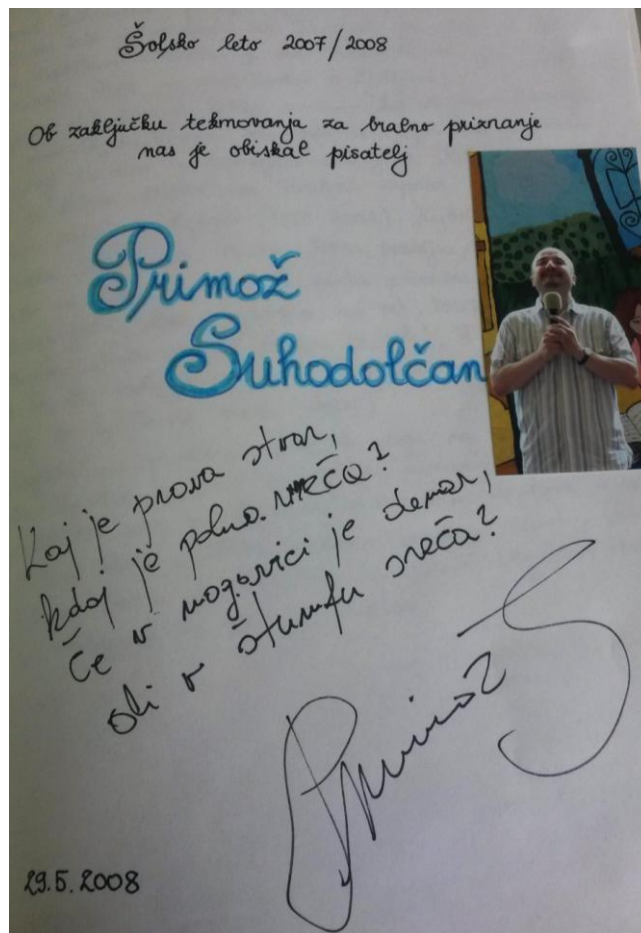 Šolsko leto 2007/2008
Ob zaključku tekmovanja za bralno priznanje
nas je obiskal pisatelj
Primož
Suhodolčan
Kaj je prava stvar,
kdaj je polna vreča?
Če v nogavici je denar,
ali v štumfu sreča?
Primož S
29.5.2008